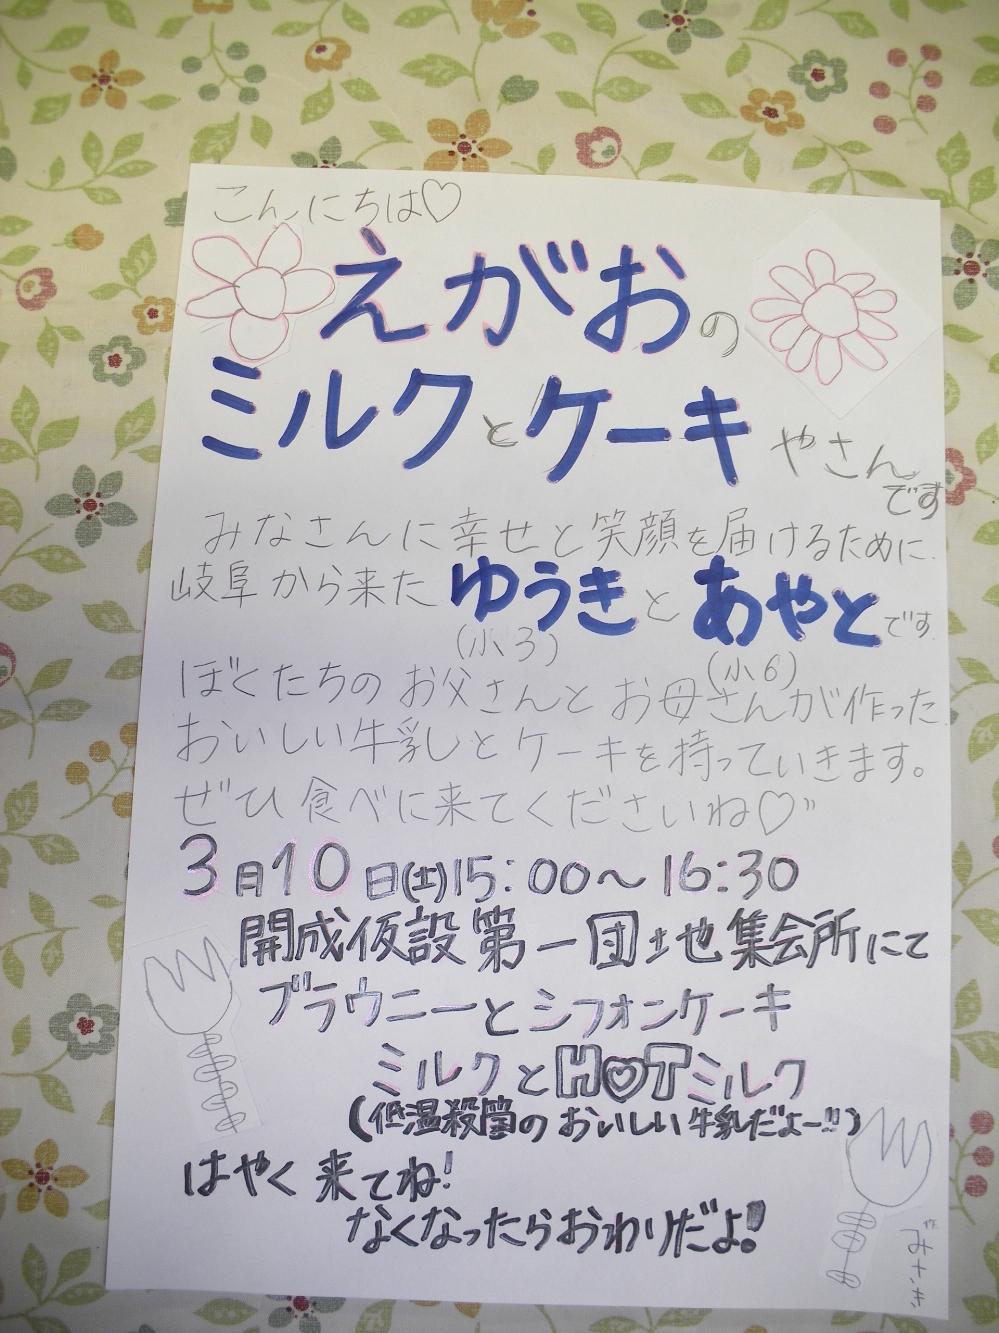 こんにちは♡
えがおの
ミルクとケーキやさん
です
みなさんに幸せと笑顔を届けるために
岐阜から来たゆうきとあやとです
(小3)
(小6)
ぼくたちのお父さんとお母さんが作った
おいしい牛乳とケーキを持っていきます。
ぜひ食べに来てくださいね♡"
3月10日(土)15:00〜16:30
開成仮設第一団地集会所にて
ブラウニーとシフォンケーキ
ミルクとHOTミルク
(低温殺菌のおいしい牛乳だよー!!)
はやく来てね!
なくなったらおわりだよ!
作 みさき